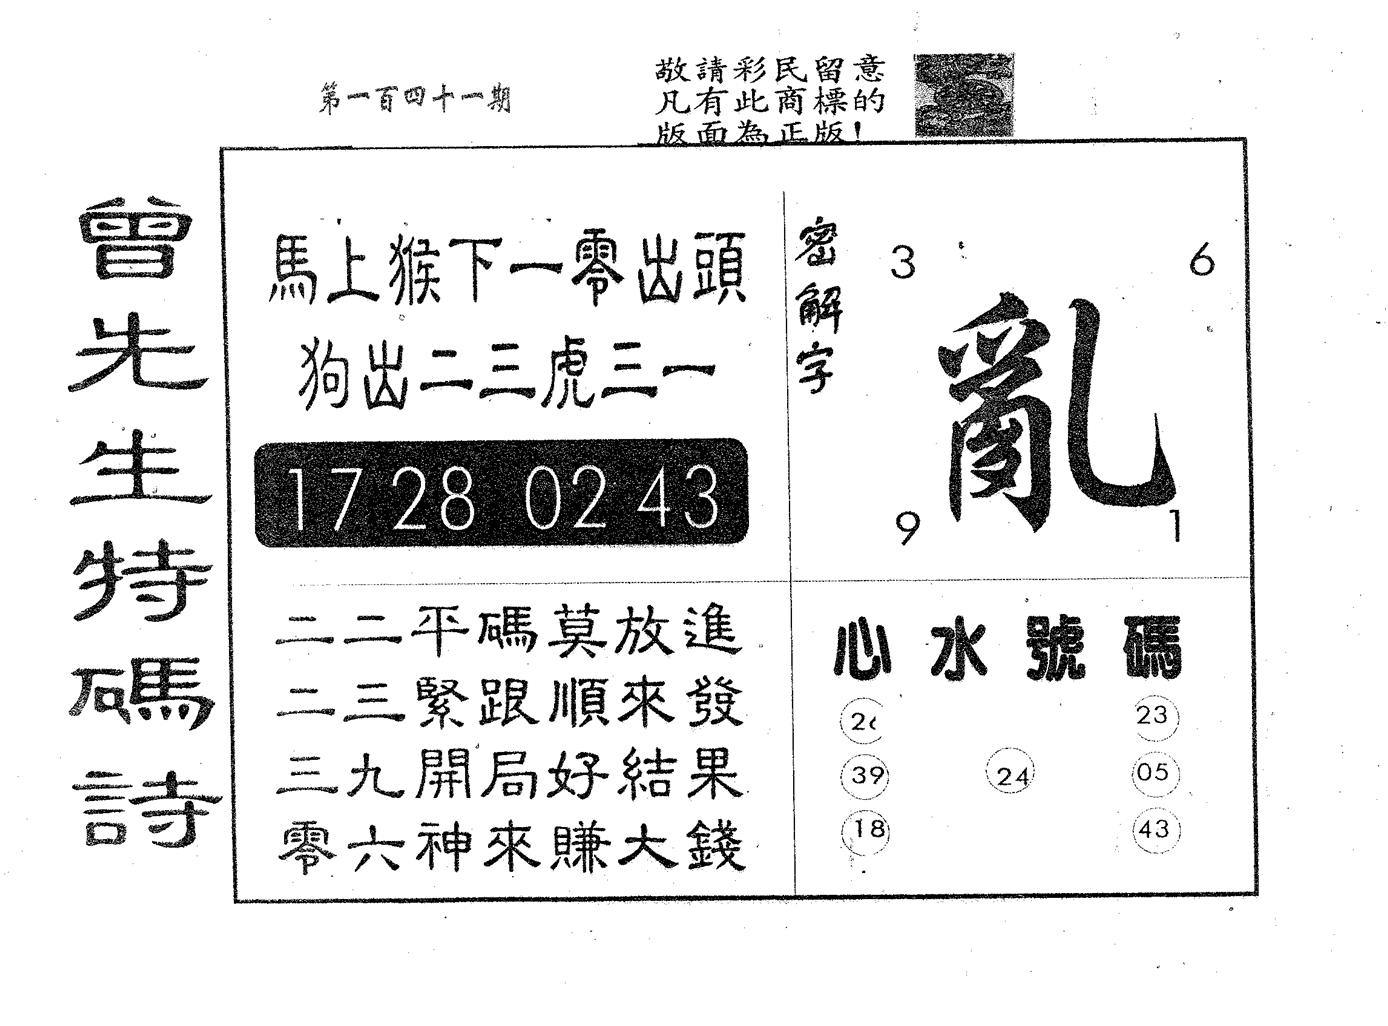 第一百四十一期
敬請彩民留意
凡有此商標的
版面為正版!
曾先生特碼詩
馬上猴下一零出頭
狗出二三虎三一
17 28 02 43
二二平碼莫放進
二三緊跟順來發
三九開局好結果
零六神來賺大錢
密解字
3 6
亂
9 1
心水號碼
26 23
39 24 05
18 43